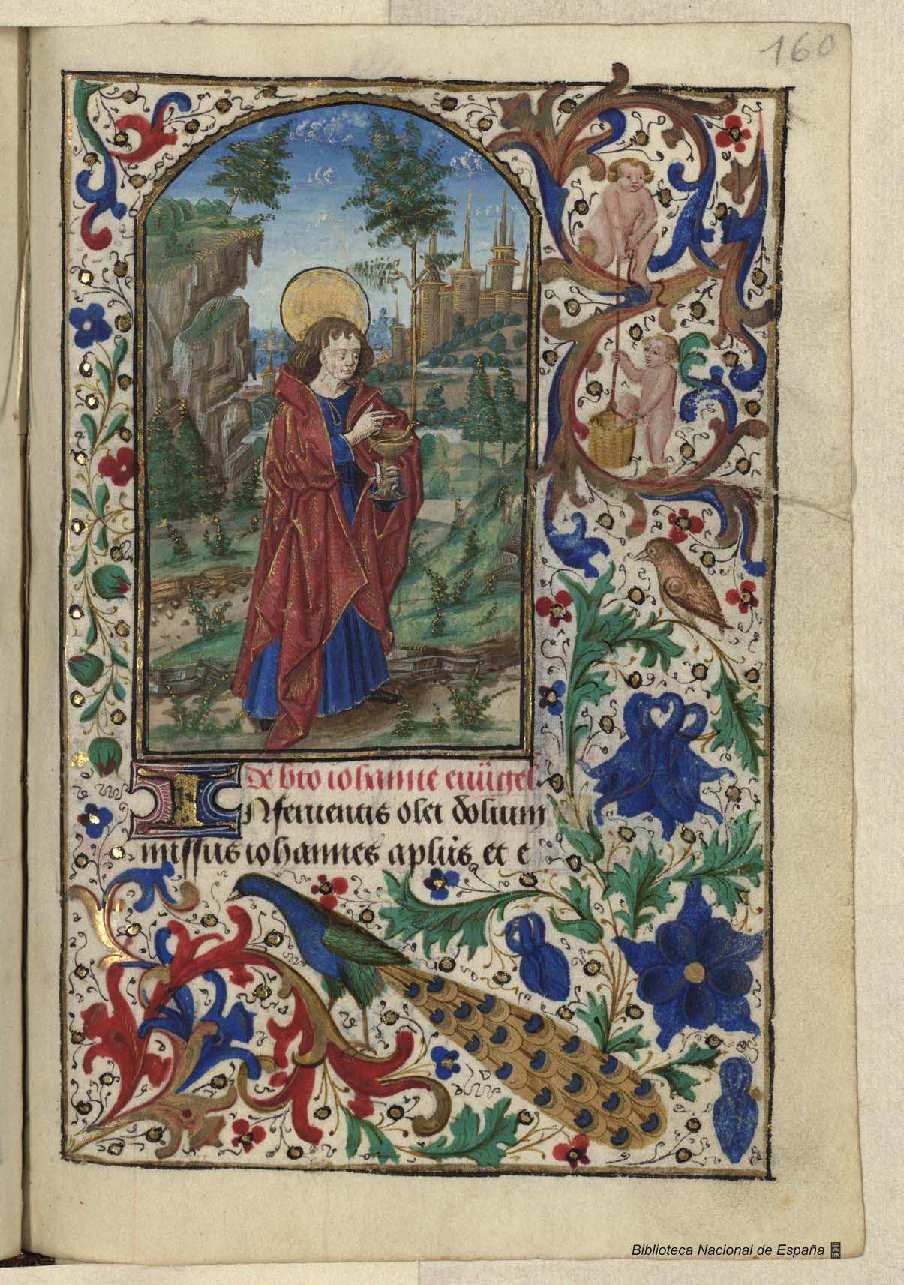 160
De bto iohanne euāgel
In feruentis olei dolium
missus iohannes aplūs et e
Biblioteca Nacional de España